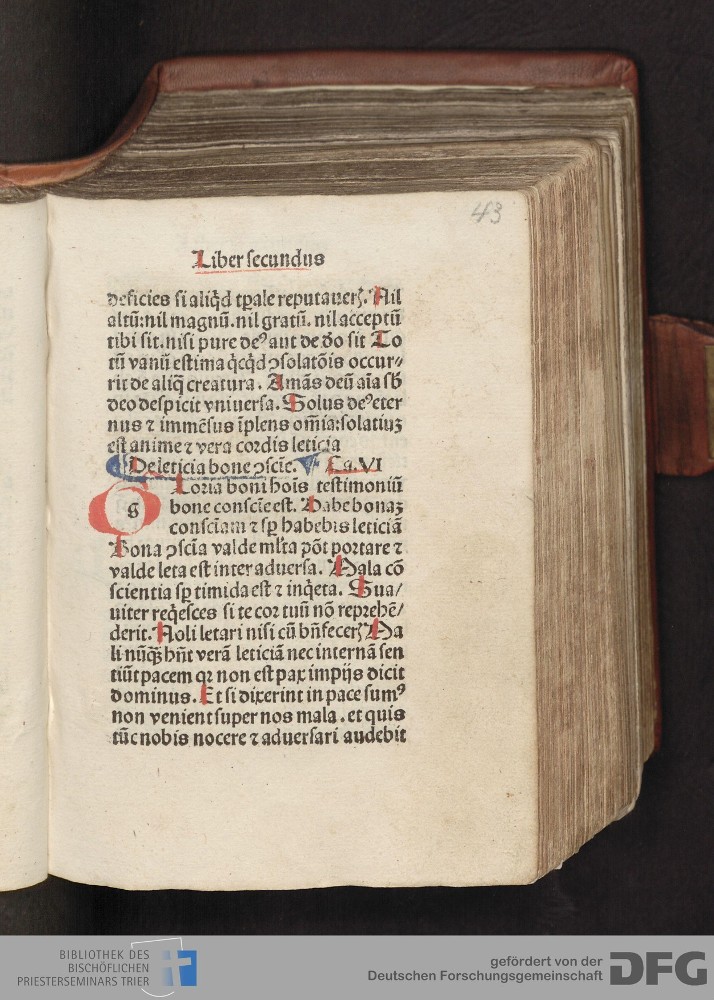 43
Liber secundus
deficies si aliq̇d tꝑale reputaueꝭ. Nil
altū: nil magnū. nil gratū. nil acceptū
tibi sit. nisi pure deꝰ aut de dō sit To
tū vanū estima q̇cq̇d ꝯsolatōis occur⸗
rit de aliq̄ creatura. Amās deū aīa sb̄
deo despicit vniuersa. Solus deꝰ eter
nus ⁊ immēsus īplens om̄ia: solatiuꝫ
est anime ⁊ vera cordis leticia
De leticia bone ꝯscīe. Ca. VI
g Loria boni hoīs testimoniū
bone conscīe est. Habe bonaꝫ
consciam ⁊ sꝑ habebis leticiā
Bona ꝯscīa valde ml̄ta pōt portare ⁊
valde leta est inter aduersa. Mala cō
scientia sꝑ timida est ⁊ inq̇eta. Sua/
uiter req̇esces si te cor tuū nō reprehē/
derit. Noli letari nisi cū bn̄feceꝭ Ma
li nūq̄ꝫ hn̄t verā leticiā nec internā sen
tiūt pacem qꝛ non est pax impijs dicit
dominus. Et si dixerint in pace sumꝰ
non venient super nos mala. et quis
tūc nobis nocere ⁊ aduersari audebit
BIBLIOTHEK DES
BISCHÖFLICHEN
PRIESTERSEMINARS TRIER
gefördert von der
Deutschen Forschungsgemeinschaft
DFG